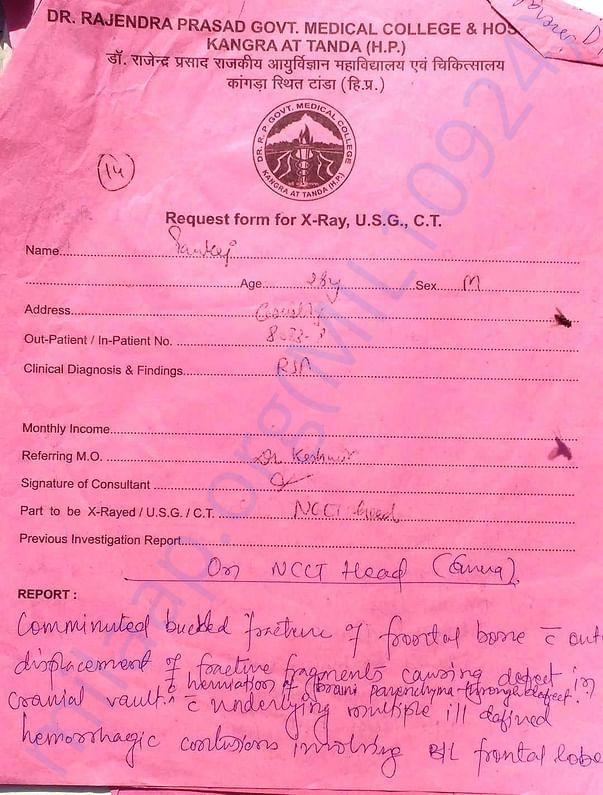 DR. RAJENDRA PRASAD GOVT. MEDICAL COLLEGE & HOS
KANGRA AT TANDA (H.P.)
डॉ. राजेन्द्र प्रसाद राजकीय आयुर्विज्ञान महाविद्यालय एवं चिकित्सालय
कांगड़ा स्थित टांडा (हि.प्र.)
DR. R. P. GOVT. MEDICAL COLLEGE
KANGRA AT TANDA (H.P.)
14
Request form for X-Ray, U.S.G., C.T.
Name
Age 28y Sex M
Address Casualty
Out-Patient / In-Patient No.
Clinical Diagnosis & Findings RSA
Monthly Income
Referring M.O. Dr.
Signature of Consultant
Part to be X-Rayed / U.S.G. / C.T. NCCT head
Previous Investigation Report
On NCCT Head
REPORT :
Comminuted buckled fracture of frontal bone c̄ out
displacement of fracture fragments causing defect in
c̄ herniation of brain parenchyma through defect
cranial vault. c̄ underlying multiple ill defined
hemorrhagic contusions involving B/L frontal lobe
milaap.org(MIL10924